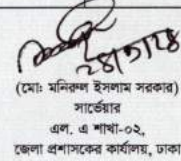 ২৪/০১/২৪
(মোঃ মনিরুল ইসলাম সরকার)
সার্ভেয়ার
এল, এ শাখা-০২,
জেলা প্রশাসকের কার্যালয়, ঢাকা